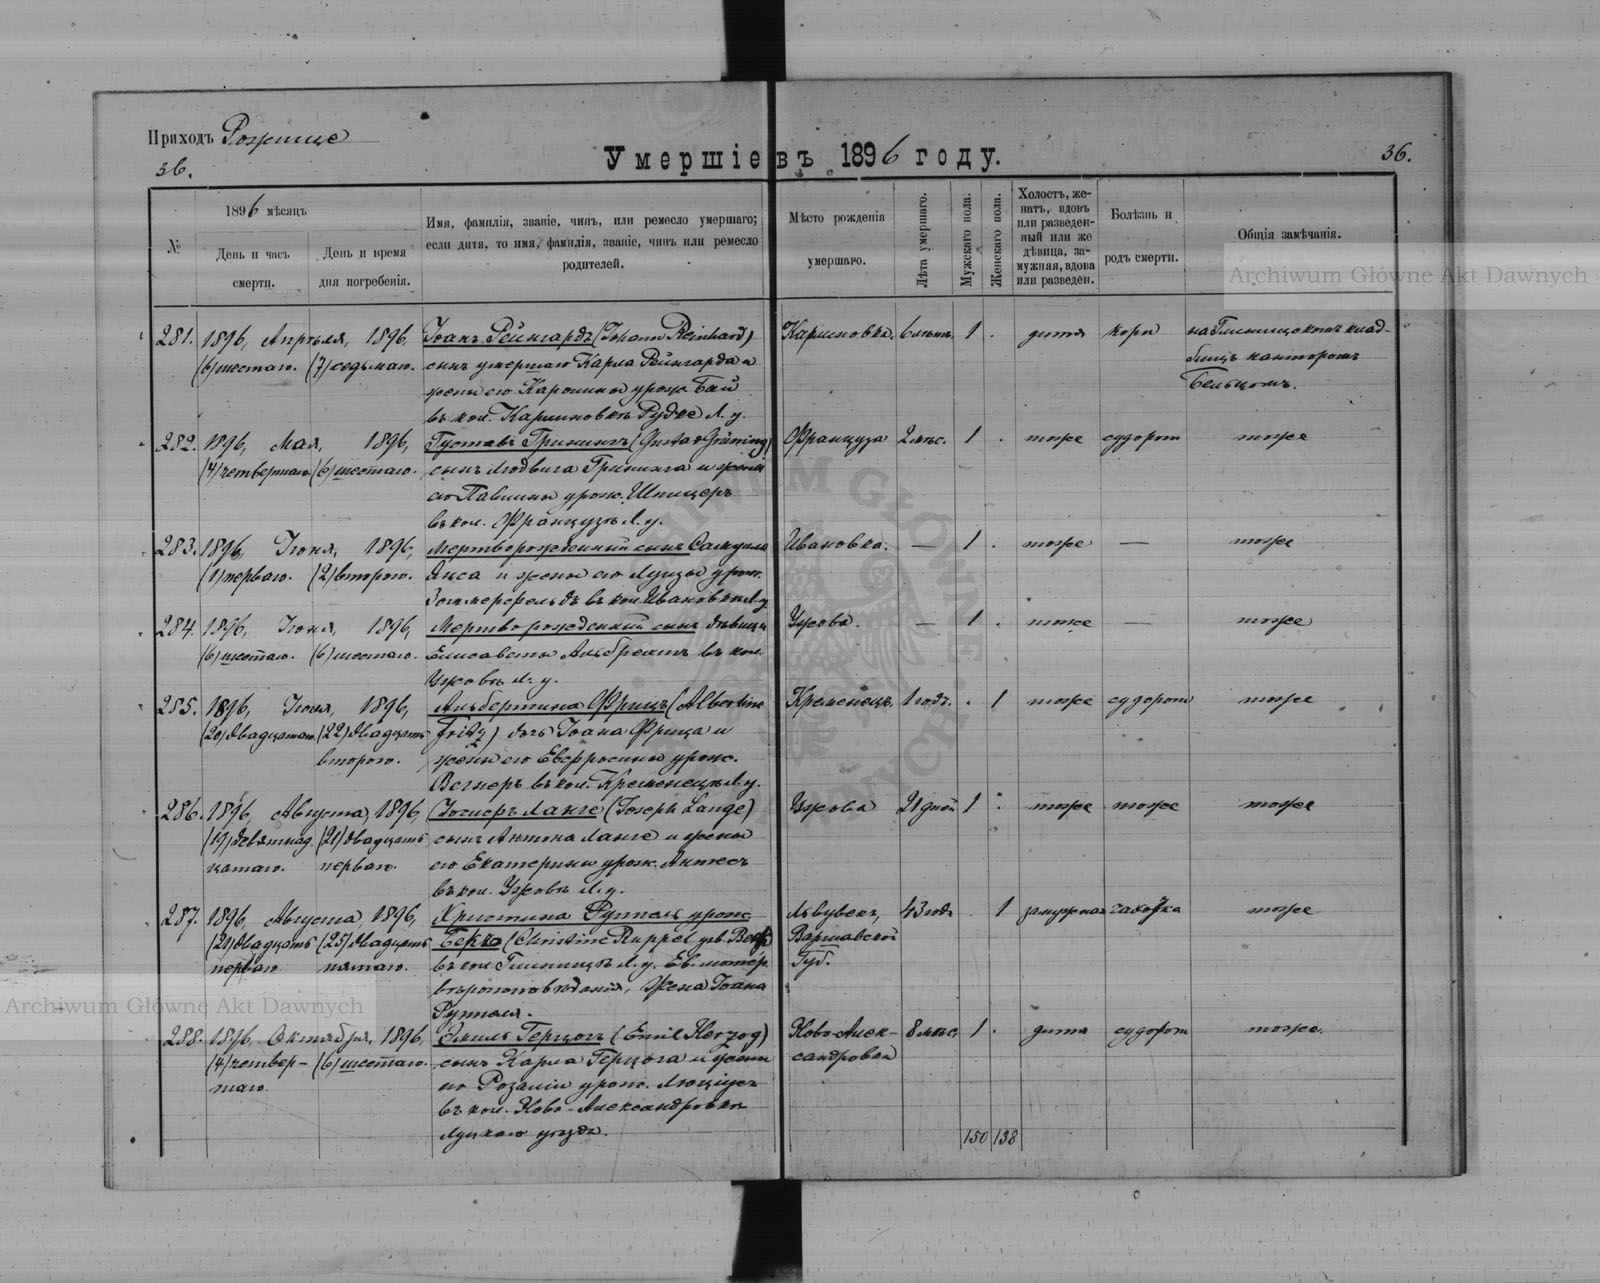 Приходъ Рожище
36.
Умершіе въ 1896 году.
36.
№
1896 мѣсяцъ
День и часъ смерти.
День и время дня погребенія.
Имя, фамилія, званіе, чинъ, или ремесло умершаго;
если дитя, то имя, фамилія, званіе, чинъ или ремесло
родителей.
Мѣсто рожденія
умершаго.
Лѣта умершаго.
Мужскаго пола.
Женскаго пола.
Холостъ, же-
натъ, вдовъ
или разведен-
ный или же
дѣвица, за-
мужняя, вдова
или разведен.
Болѣзнь и
родъ смерти.
Общія замѣчанія.
Archiwum Główne Akt Dawnych
281. 1896, Апрѣля, 1896, Іоанъ Рейнгардъ (Johann Reinhard) Каролиновка. 1 . дитя корь на Глинищскомъ клад-
(6) шестаго. (7) седьмаго. сынъ умершаго Карла Рейнгарда и бищѣ канторомъ
жены его Каролины урож. Бельцомъ.
въ кол. Рудке Л. у.
282. 1896, Мая, 1896, Густавъ Гринингъ (Gustav Grüning) Француза 2 мѣс. 1 . тоже судороги тоже
(4) четвертаго (6) шестаго. сынъ Людвига Грининга и жены
его Павлины урож. Шпицеръ
въ кол. Французъ Л. у.
283. 1896, Іюня, 1896, Мертворожденный сынъ Самуила Ивановка. — 1 . тоже — тоже
(1) перваго. (2) втораго. и жены его Луизы урож.
Зоммерфельдъ въ кол. Ивановка Л. у.
284. 1896, Іюня, 1896, Мертворожденный сынъ дѣвицы Ужова. — 1 . тоже — тоже
(6) шестаго. (6) шестаго. Елисаветы Альбрехтъ въ кол.
Ужовъ Л. у.
285. 1896, 1896, Альбертина Фрицъ (Albertine Кременецъ. 1 годъ. . 1 тоже судороги тоже
(20) двадцатаго (22) двадцать Fritz) дочь Іоана Фрица и
втораго. жены его Евфросины урож.
Вегнеръ въ кол. Кременецъ Л. у.
286. 1896, Августа, 1896, Іосифъ Ланге (Joseph Lange) Ужова 21 дней 1 . тоже тоже тоже
(19) девятнад (21) двадцать сынъ Антона Ланге и жены
цатаго. перваго. его Екатерины урож. Антесъ
въ кол. Ужовъ Л. у.
287. 1896, Августа, 1896, Христина Руппель урож. 43 года . 1 замужная чахотка тоже
(21) двадцать (25) двадцать (Christine Ruppel geb. Варшавской
перваго пятаго. въ кол. Глинищъ Л. у. Ев. лютер. Губ.
вѣроисповѣданія, Жена Іоана
Руппеля.
288. 1896, Октября, 1896, Эмиль Герцогъ (Emil Herzog) Ново-Алек- 8 мѣс. 1 . дитя судороги тоже.
(4) четвер- (6) шестаго. сынъ Карла Герцога и жены сандровка
таго. его Розаліи урож.
въ кол. Ново-Александровка
Луцкаго уѣзда.
150 138
Archiwum Główne Akt Dawnych
ARCHIWUM GŁÓWNE AKT DAWNYCH